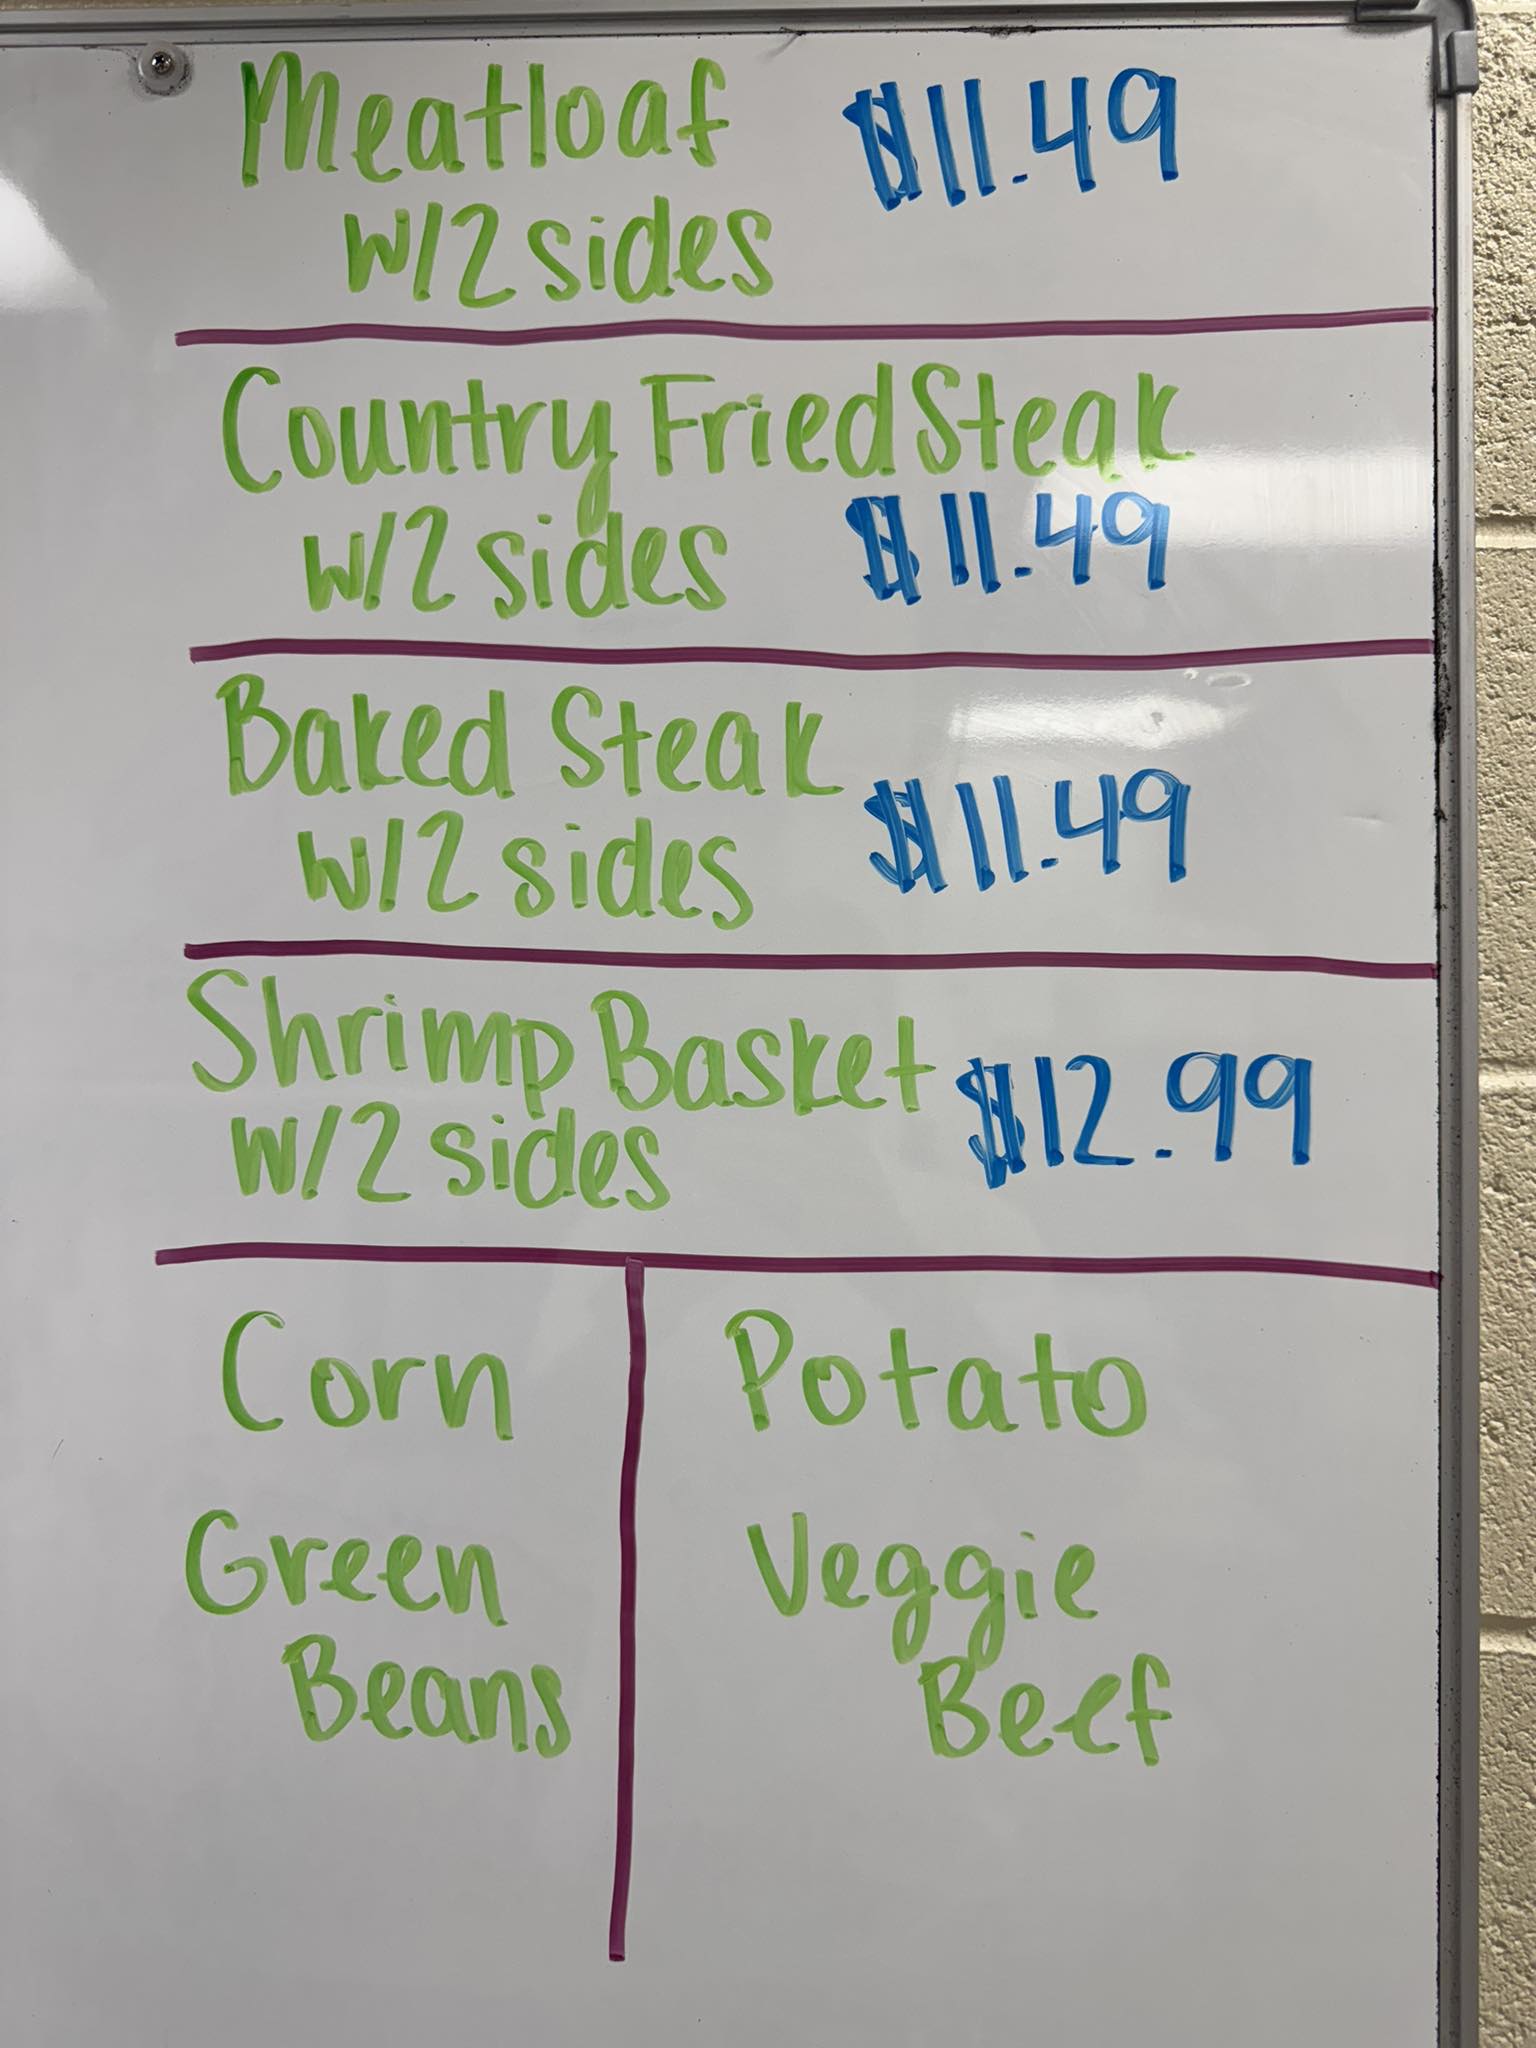 Meatloaf $11.49
w/2 sides
Country Fried Steak
w/2 sides $11.49
Baked Steak
w/2 sides $11.49
Shrimp Basket $12.99
w/2 sides
Corn
Green
Beans
Potato
Veggie
Beef